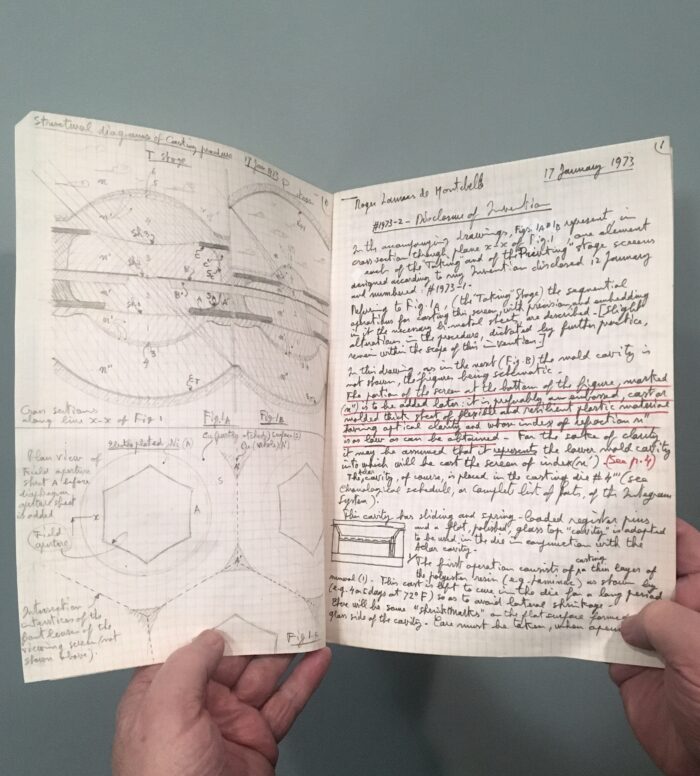 Structural diagrams of Casting procedure 17 Jan 1973
T stage
P stage
Cross sections
along line x-x of Fig 1
Fig 1A
Fig 1B
Plan view of
Field aperture
sheet A before
diaphragm
aperture sheet
is added
plated Ni (A)
Field
aperture
x
A
S
interstices of the
front lenses of the
viewing screen (not
shown above).
Fig 1c
(1
17 January 1973
Roger Lannes de Montebello
#1973-2 - Disclosure of Invention
In the accompanying drawings, Figs. 1A & 1B represent, in
cross section through plane x-x of Fig. 1 one element
each of the "Taking" and of the "Printing" stage screens
designed according to my Invention disclosed 12 January
and numbered #1973-1.
Refering to Fig. 1A, (the "Taking" Stage) the sequential
operations for casting the screen, with provision, and embedding
in it the necessary bi-metal sheet, are described - [Slight
alterations in the procedure, dictated by further practice,
remain within the scope of this invention.]
In this drawing, as in the next (Fig. B) the mold cavity is
not shown, the figure being schematic.
The portion of the screen at the bottom of the figure, marked
(n") is to be added later: it is preferably an embossed, cast or
molded thick sheet of flexible and resilient plastic material
having optical clarity and whose index of refraction n"
is as low as can be obtained - For the sake of clarity
it may be assumed that it represents the lower mold cavity
into which will be cast the screen of index (n'). (See p. 4)
The Aclar cavity, of course, is placed in the casting die #4''' (see
Chronological schedule, or Complete list of Parts, of the Integram
System).
This cavity has sliding and spring-loaded register pins
and a flat, polished, glass top "cavity" is adapted
to be used in the die in conjunction with the
Aclar cavity.
The first operation consists of casting a thin layer of
the polyester resin (e.g. Laminac) as shown by
numeral (1). This cast is left to cure in the die for a long period
(e.g. 4 days at 72°F) so as to avoid lateral shrinkage -
There will be some "shrink marks" on the flat surface
glass side of the cavity. Care must be taken, when